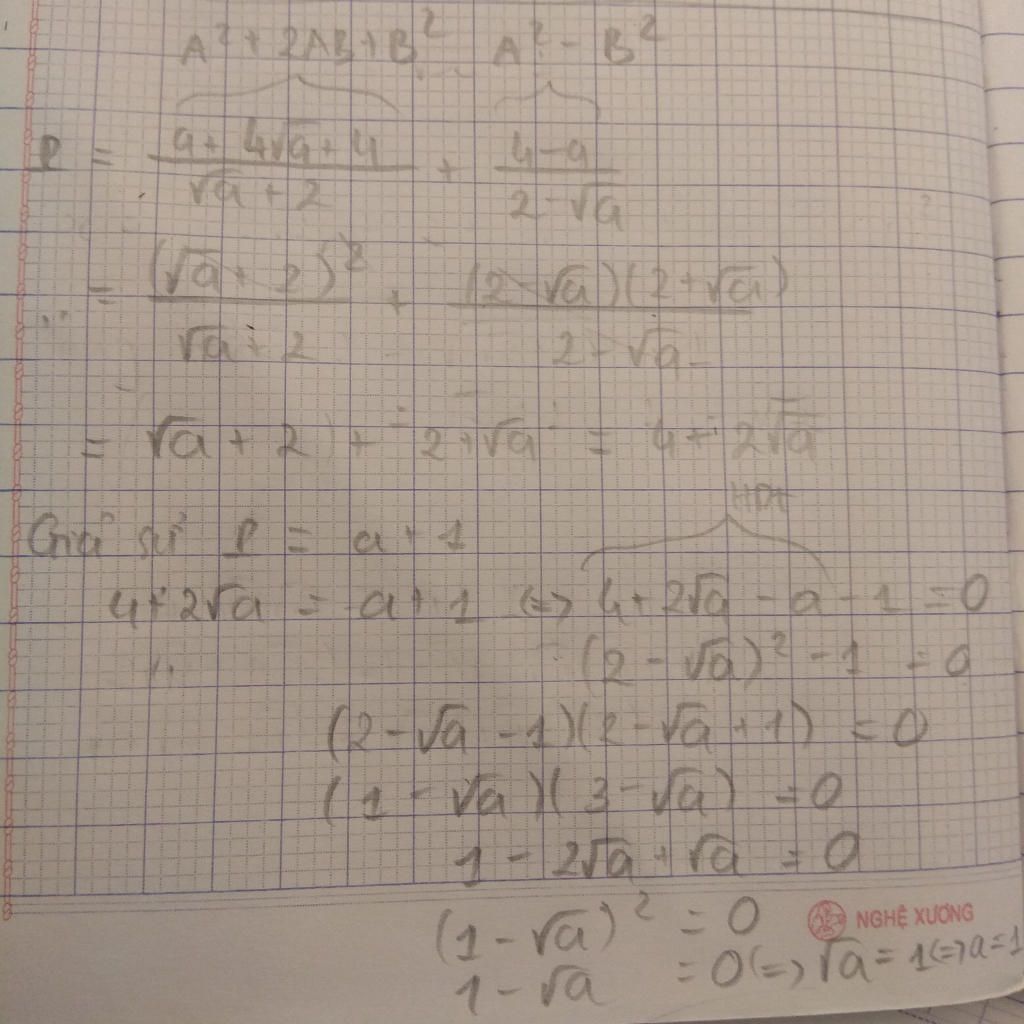 A² + 2AB + B² A² - B²
P = (a + 4√a + 4)/(√a + 2) + (4 - a)/(2 - √a)
= (√a + 2)²/(√a + 2) + (2 - √a)(2 + √a)/(2 - √a)
= √a + 2 + 2 + √a = 4 + 2√a
HĐT
Giả sử P = a + 1
4 + 2√a = a + 1 <=> 4 + 2√a - a - 1 = 0
(2 - √a)² - 1 = 0
(2 - √a - 1)(2 - √a + 1) = 0
(1 - √a)(3 - √a) = 0
1 - 2√a + √a = 0
(1 - √a)² = 0
NGHỆ XƯƠNG
1 - √a = 0 <=> √a = 1 <=> a = 1